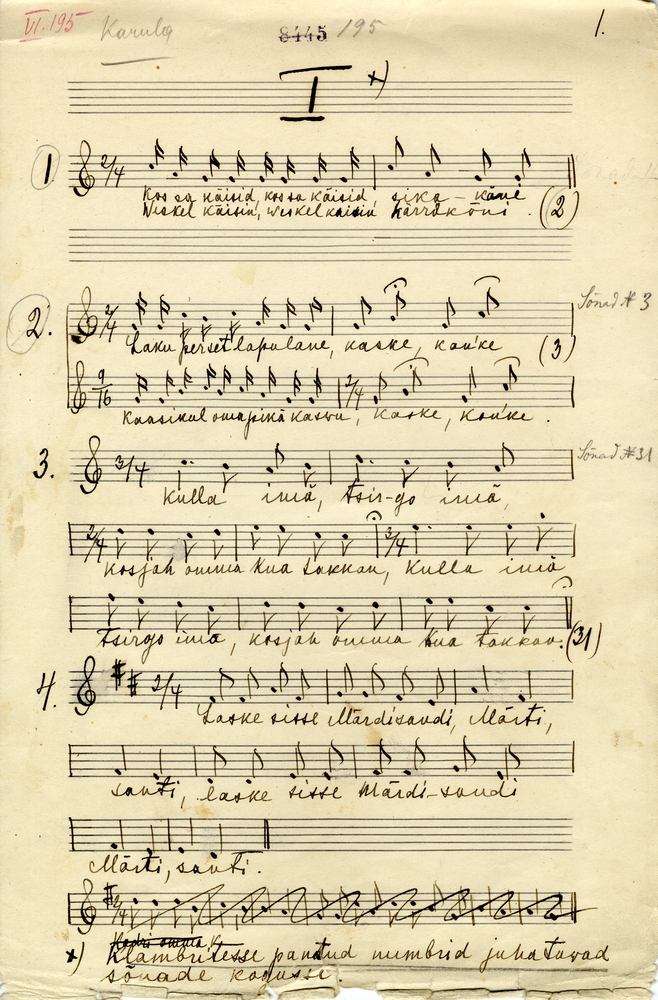 VI. 195 Karula 8445 195 1.
I x)
1. 2/4
Kos sa käisid, kos sa käisid, sika - käni
Weskel käisin, weskel kaisin Kärräkõni. (2)
2. 2/4 Sõnad № 3
Laku perset lapulane, kaske, kan'ke (3)
9/16 2/4
Kaasikul omapikä kaswu, kaske, kan'ke.
3. 3/4 Sõnad № 31
Kulla imä, tsir-go imä,
2/4 3/4
kosjah omma kua takkan, kulla imä
tsirgo imä, kosjah omma kua takkan. (31)
4. 2/4
Laske sisse Märdisandi, Märti,
santi, laske sisse Märdi-sandi
Märti, santi.
2/4
Kadri omma
x) Klambritesse pantud numbrid juhatawad
sõnade kogussi.